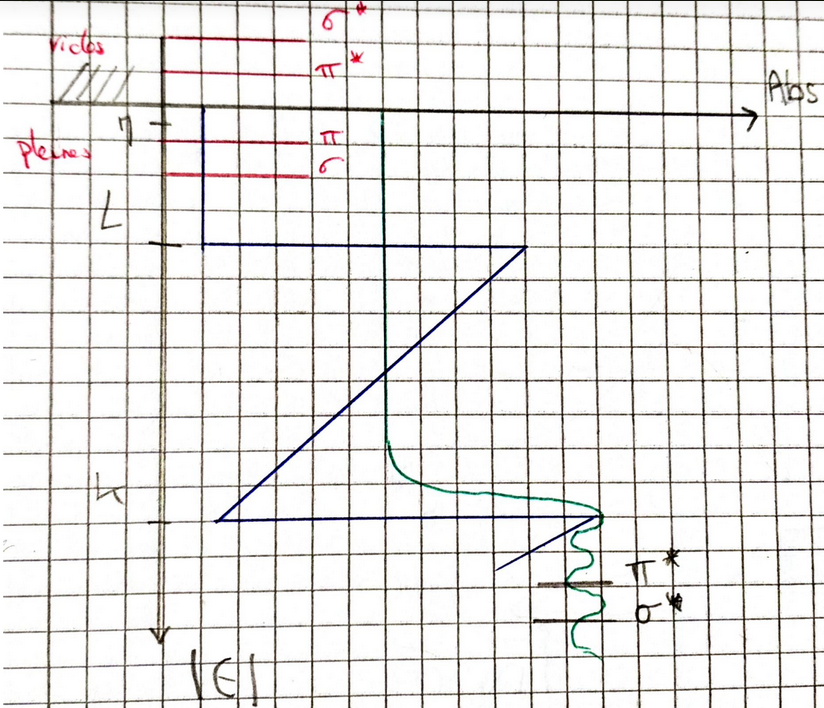 σ*
vides
π*
Abs
M
π
pleines
σ
L
K
π*
σ*
|E|